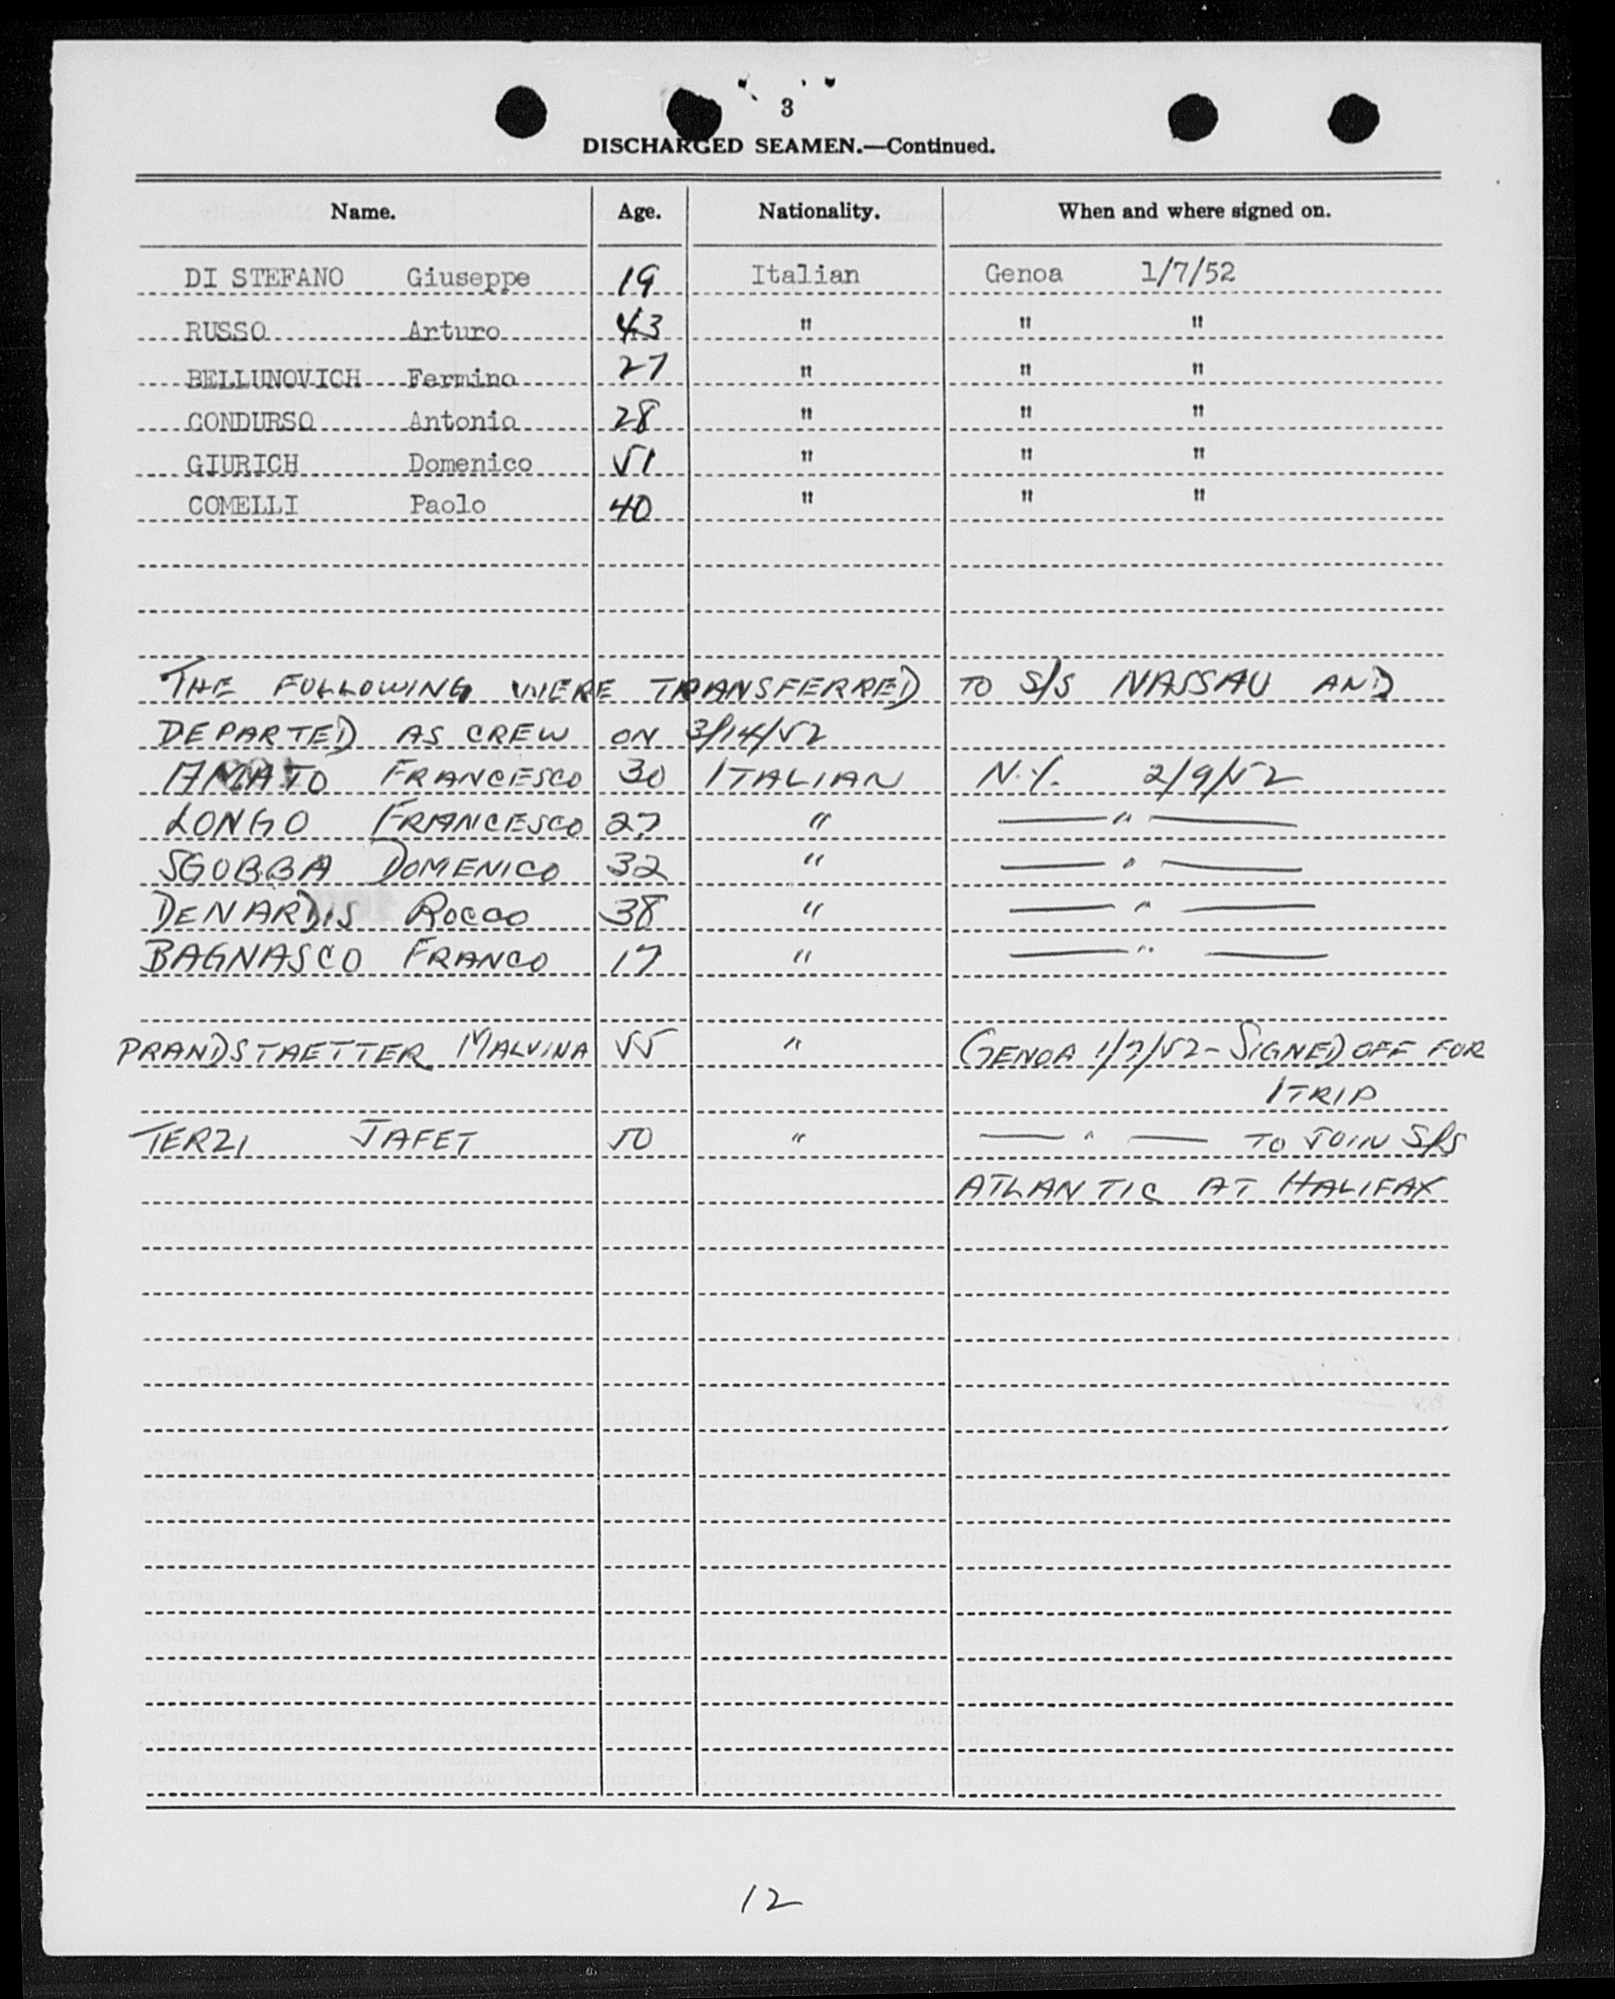 3
DISCHARGED SEAMEN.—Continued.
Name. Age. Nationality. When and where signed on.
DI STEFANO Giuseppe 19 Italian Genoa 1/7/52
RUSSO Arturo 43 " " "
BELLUNOVICH Fermino 27 " " "
CONDURSO Antonio 28 " " "
GIURICH Domenico 51 " " "
COMELLI Paolo 40 " " "
THE FOLLOWING WERE TRANSFERRED TO S/S NASSAU AND
DEPARTED AS CREW ON 3/14/52
AMATO FRANCESCO 30 ITALIAN N.Y. 2/9/52
LONGO FRANCESCO 27 " — " —
SGOBBA DOMENICO 32 " — " —
DENARDIS ROCCO 38 " — " —
BAGNASCO FRANCO 17 " — " —
PRANDSTAETTER MALVINA 55 " GENOA 1/7/52 - SIGNED OFF FOR
1 TRIP
TERZI JAFET 50 " — " — TO JOIN S/S
ATLANTIC AT HALIFAX
12